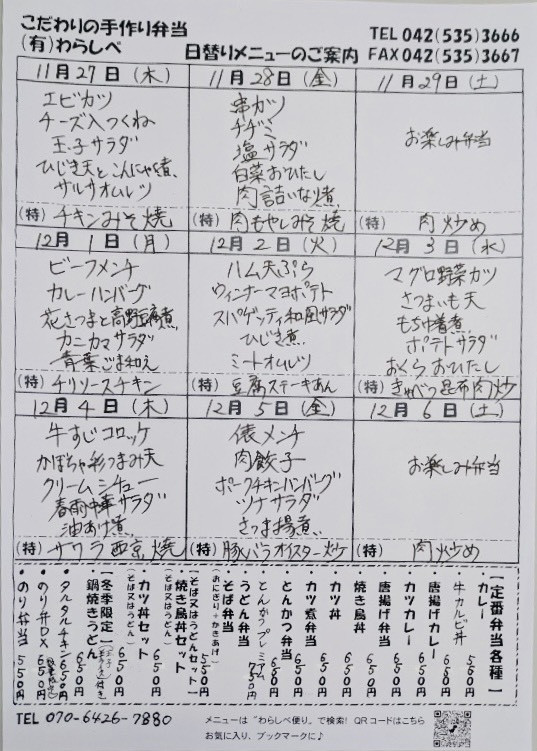 こだわりの手作り弁当
(有)わらしべ
日替りメニューのご案内
TEL 042(535)3666
FAX 042(535)3667
11月27日(木)
エビカツ
チーズ入つくね
玉子サラダ
ひじき天とこんにゃく煮
サルサオムレツ
(特)チキンみそ焼
11月28日(金)
串カツ
チヂミ
塩サラダ
白菜おひたし
肉詰いなり煮
(特)肉もやしみそ焼
11月29日(土)
お楽しみ弁当
(特)肉炒め
12月1日(月)
ビーフメンチ
カレーハンバーグ
花さつまと高野豆腐煮
カニカマサラダ
青菜ごま和え
(特)チリソースチキン
12月2日(火)
ハム天ぷら
ウィンナーマヨポテト
スパゲッティ和風サラダ
ひじき煮
ミートオムレツ
(特)豆腐ステーキあん
12月3日(水)
マグロ野菜カツ
さつまいも天
もち巾着煮
ポテトサラダ
おくらおひたし
(特)きゃべつ昆布肉炒
12月4日(木)
牛すじコロッケ
かぼちゃ彩つまみ天
クリームシチュー
春雨中華サラダ
油あげ煮
(特)サワラ西京焼
12月5日(金)
俵メンチ
肉餃子
ポークチキンハンバーグ
ツナサラダ
さつま揚煮
(特)豚バラオイスター炒
12月6日(土)
お楽しみ弁当
(特)肉炒め
【定番弁当各種】
・カレー 550円
・牛カルビ丼 650円
・唐揚げカレー 650円
・カツカレー 650円
・唐揚げ弁当 650円
・焼き鳥丼 650円
・カツ丼 650円
・カツ煮弁当 650円
・とんかつ弁当 650円
・とんかつプレミアム 750円
・うどん弁当
・そば弁当 550円
(おにぎり・かきあげ)
【そば又はうどんセット】
・焼き鳥丼セット 650円
(そば又はうどん)
・カツ丼セット 650円
(そば又はうどん)
【冬季限定】
・鍋焼きうどん 650円
・タルタルチキン 650円
・のり弁DX 650円
・のり弁当 550円
TEL 070-6426-7880
メニューは"わらしべ便り"で検索! QRコードはこちら
お気に入り、ブックマークに♪